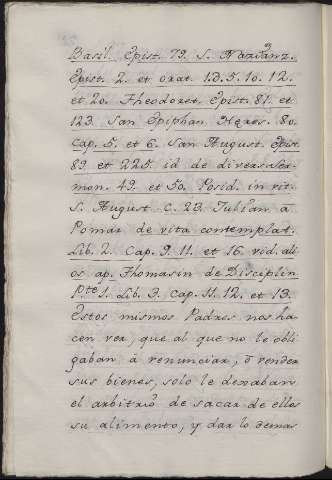 Basil. Epist. 79. S. Nazianz.
Epist. 2. et orat. 1.D.5.10.12.
et 20. Theodoret. Epist. 81. et
123. San Epiphan. Hæres. 80.
Cap. 5. et 6. San August. Epist.
89. et 225. id de divers. Ser-
mon. 49. et 50. Posid. in vit.
S. August. C. 23. Julian. a
Pomar. de vita contemplat.
Lib. 2. Cap. 9. 11. et 16. vid. ali
os ap. Thomasin de Disciplin
Pte. 1. Lib. 3. Cap. 11. 12. et 13.
Estos mismos Padres nos ha-
cen ver, que al que no le obli
gaban á renunciar, ó vender
sus bienes, solo le dexaban
el arbitrio de sacar de ellos
su alimento, y dar lo demas